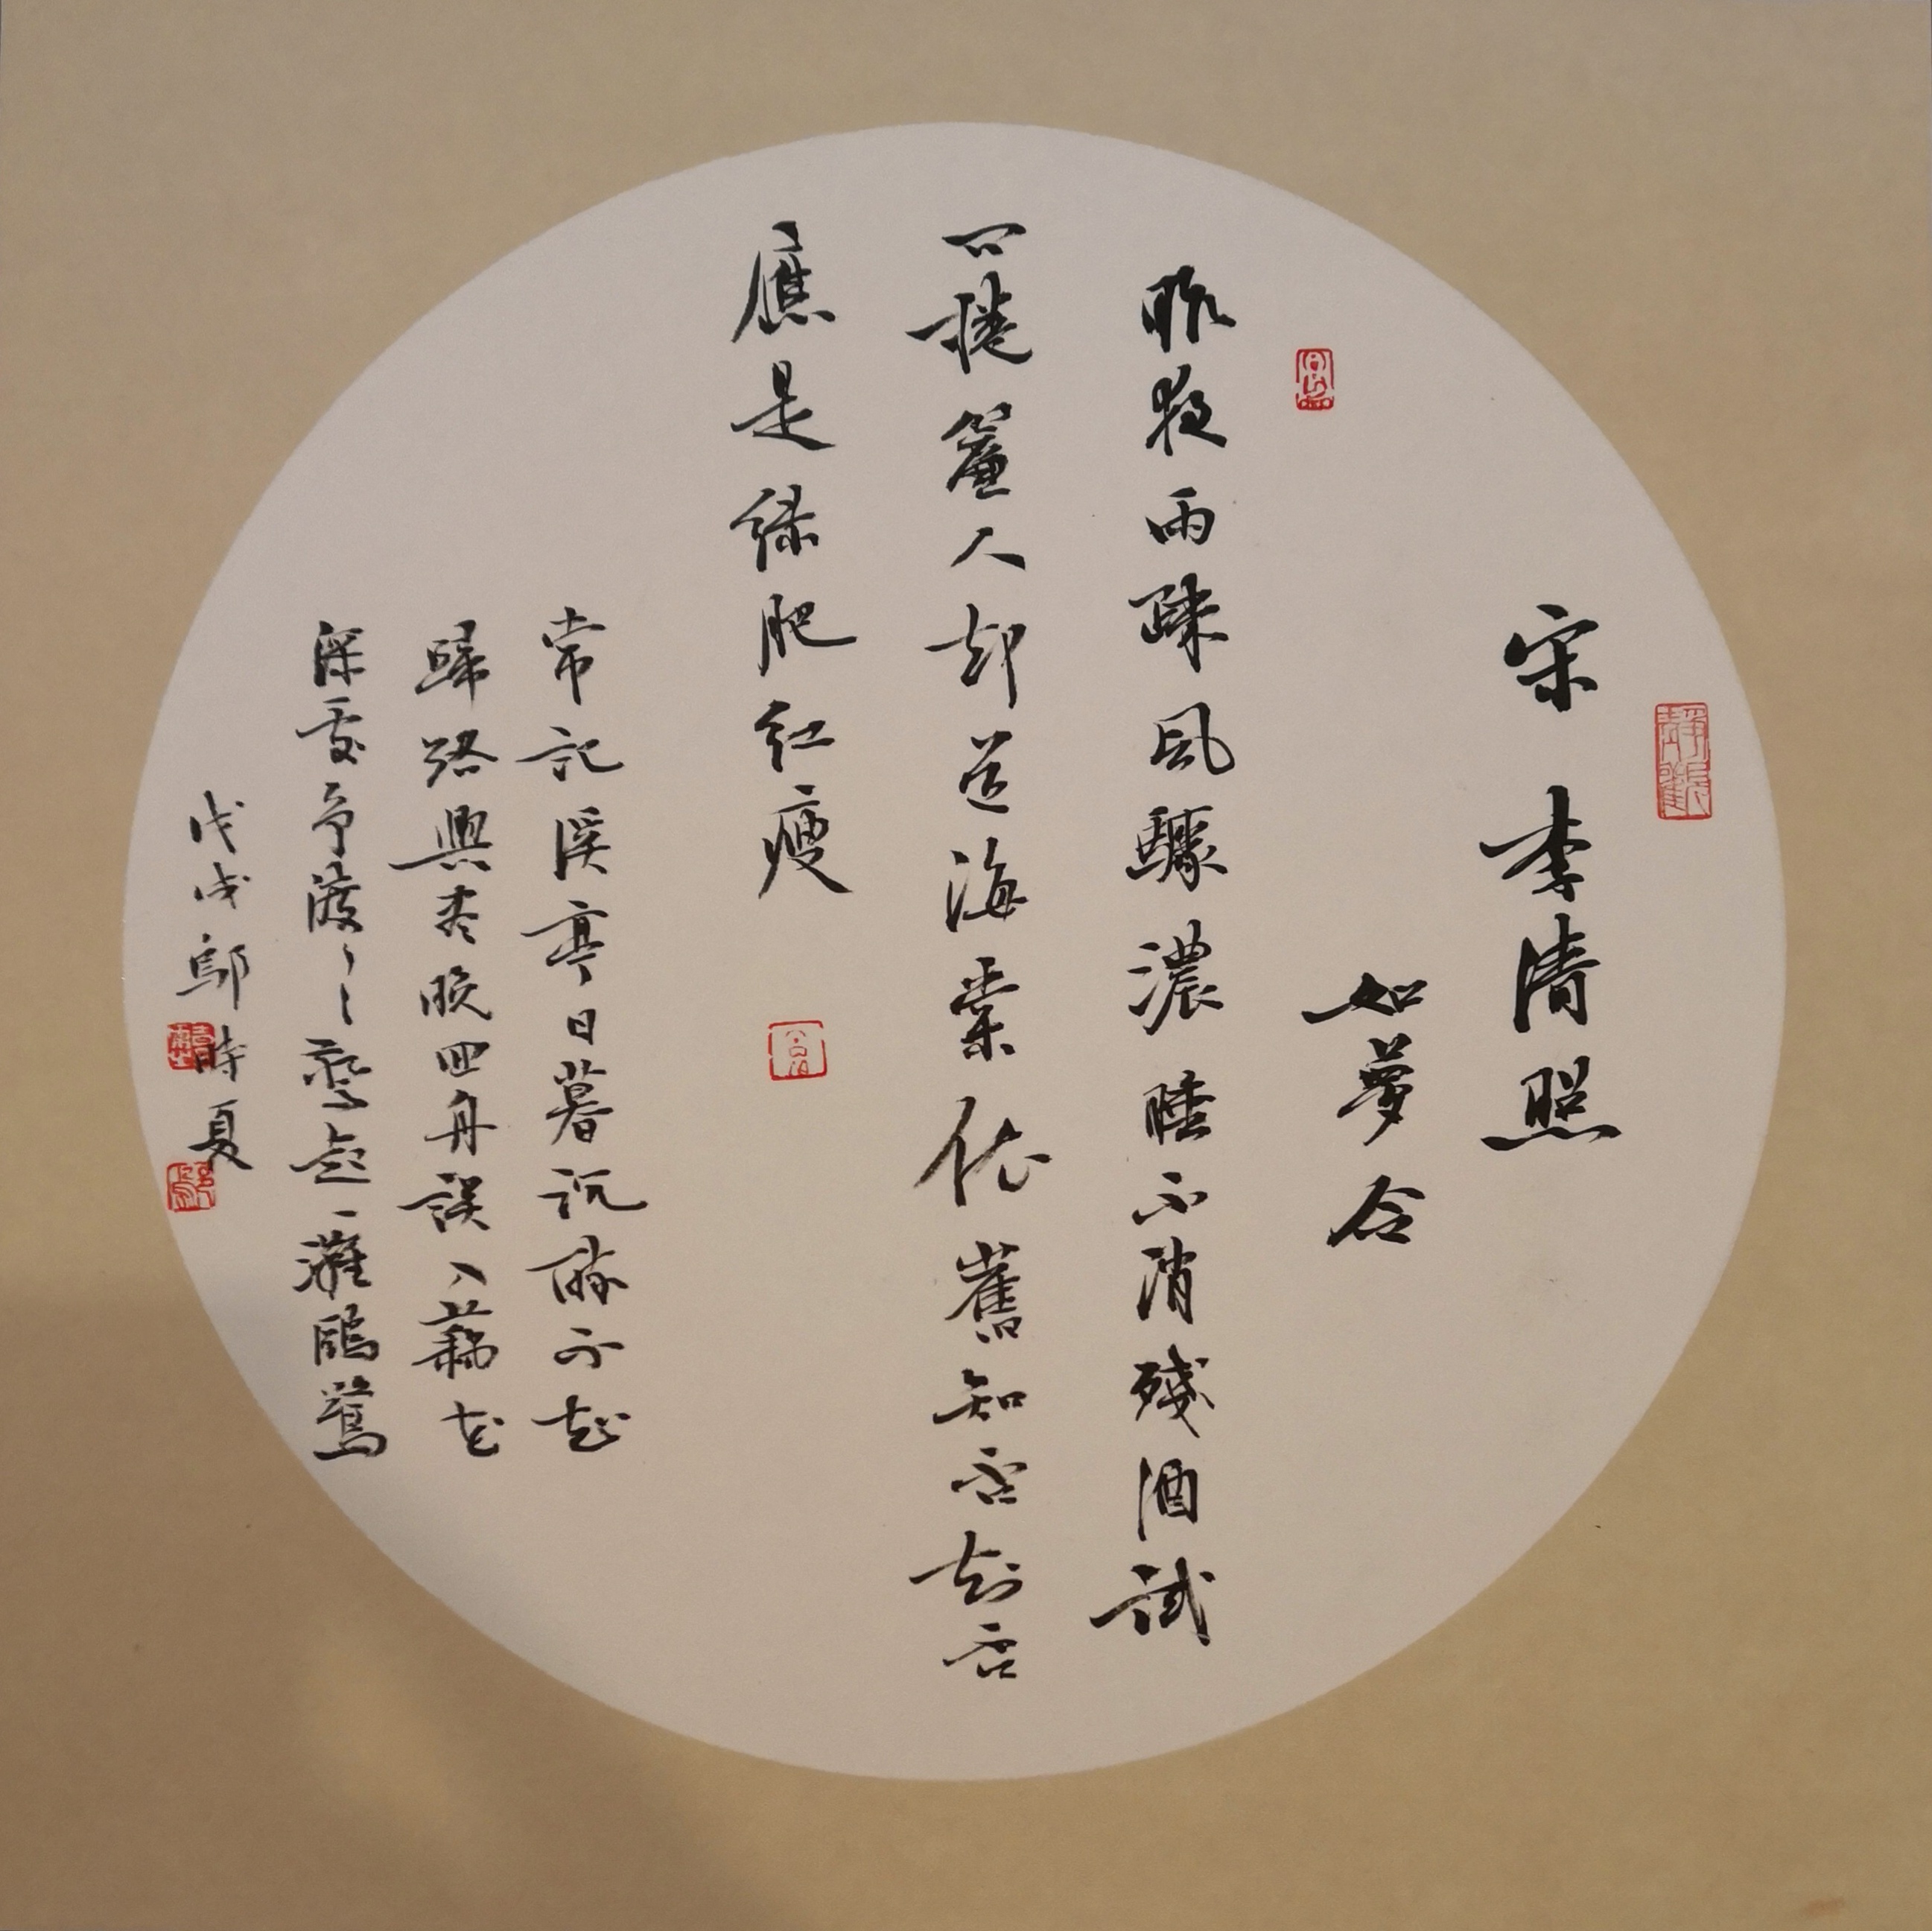 靜觀
宋 李清照
如夢令
昨夜雨疎風驟濃睡不消殘酒試
问捲簾人却道海棠依舊知否知否
應是绿肥红瘦
常記溪亭日暮沉醉不知
歸路興盡晚回舟誤入藕花
深處争渡々々驚起一灘鷗鷺
戊戌鄔時夏